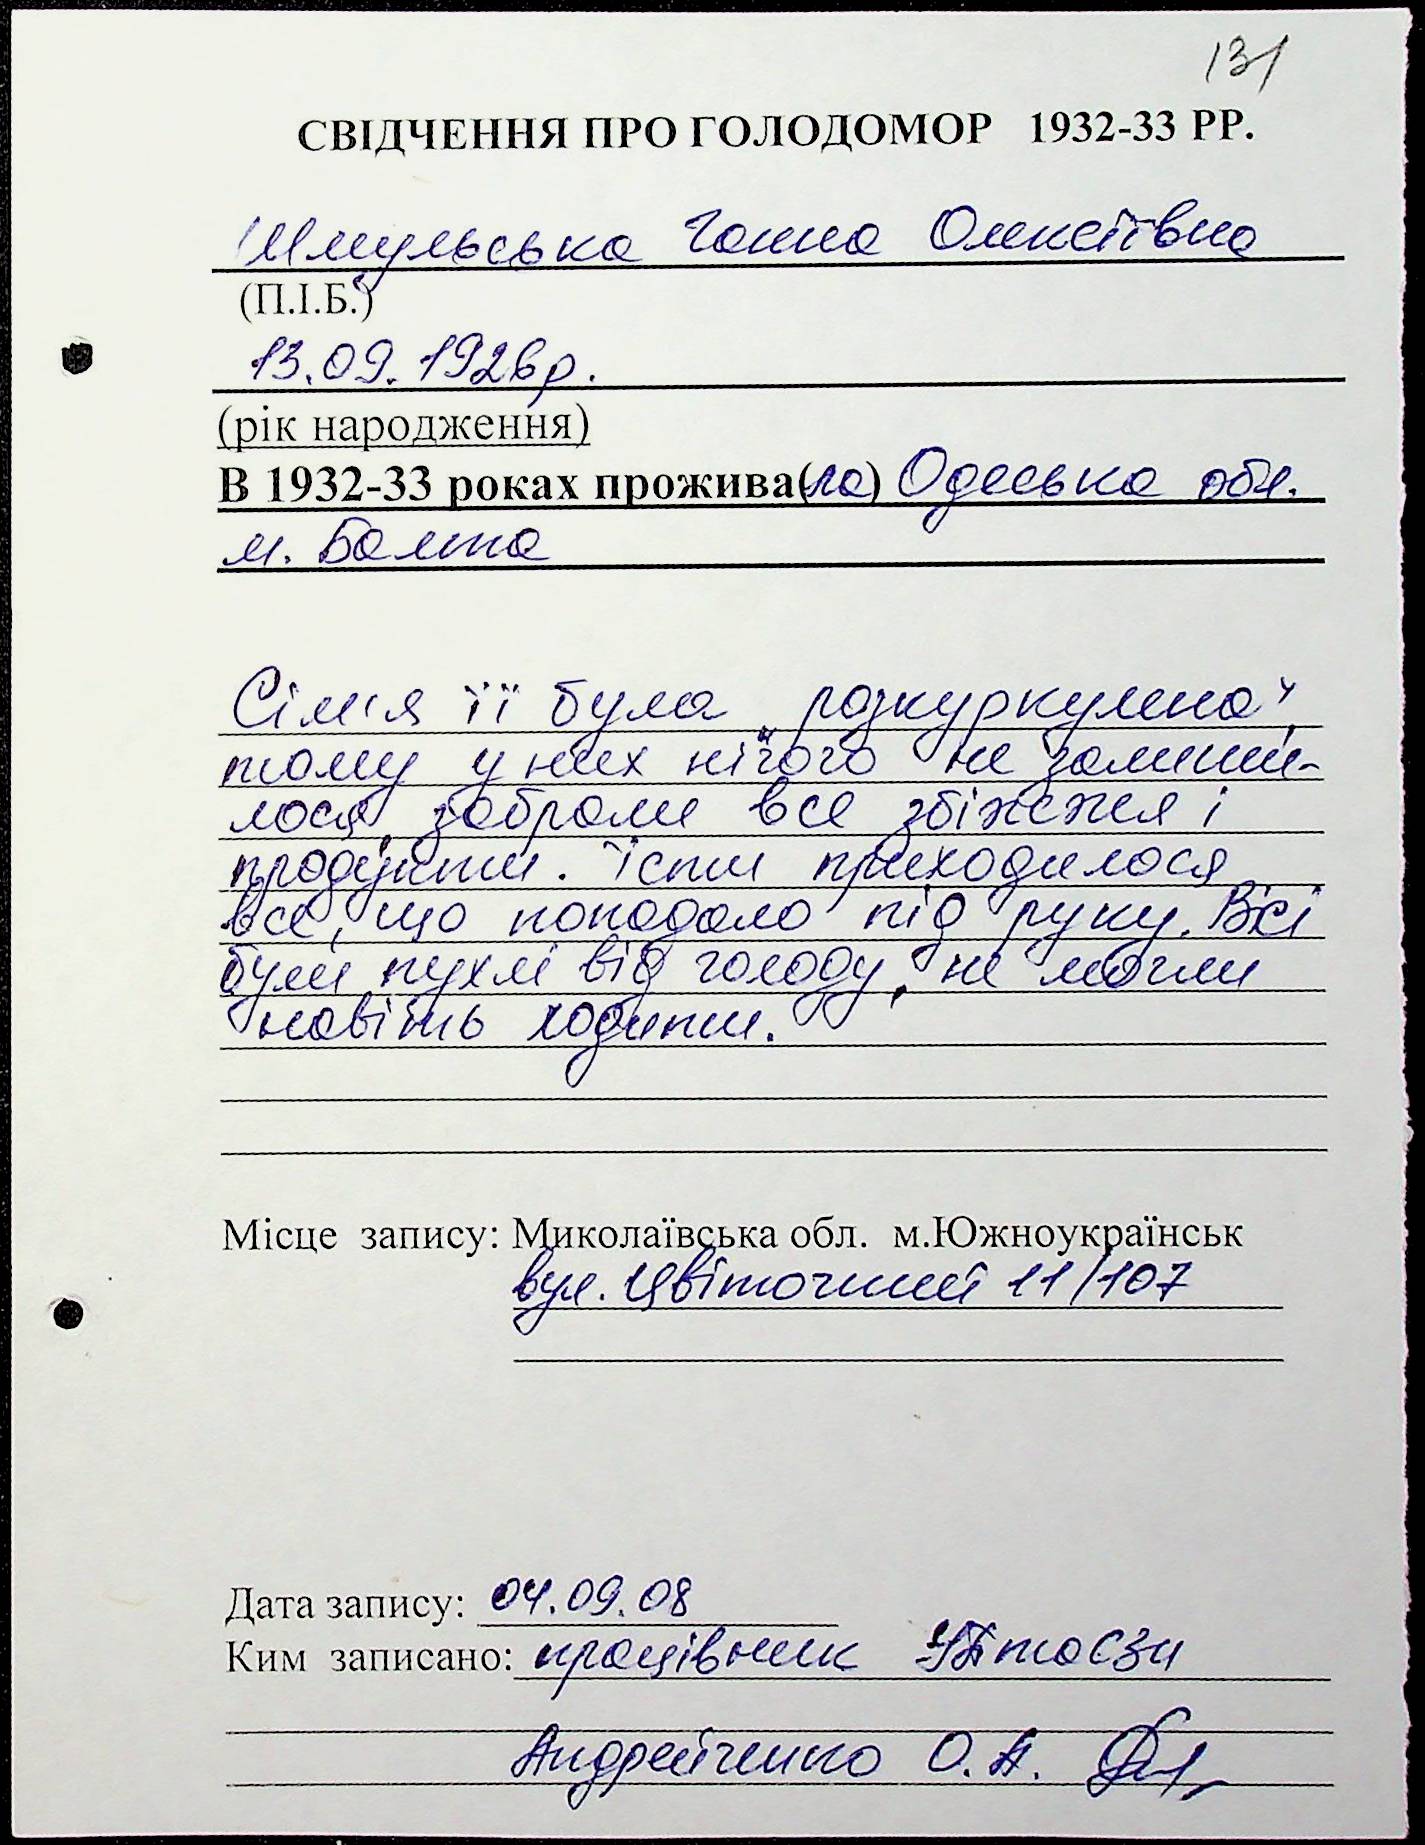 131
СВІДЧЕННЯ ПРО ГОЛОДОМОР 1932-33 РР.
Шмульська Ганна Олексіївна
(П.І.Б.)
13.09.1926р.
(рік народження)
В 1932-33 роках прожива(ла) Одеська обл.
м. Балта
Сім'я її була „розкуркулена",
тому у них нічого не залиши-
лося, забрали все збіжжя і
продукти. Їсти приходилося
все, що попадало під руку. Всі
були пухлі від голоду, не могли
навіть ходити.
Місце запису: Миколаївська обл. м.Южноукраїнськ
вул. Цвіточний 11/107
Дата запису: 04.09.08
Ким записано: працівник УПтаСЗН
Андрейченко О.А.